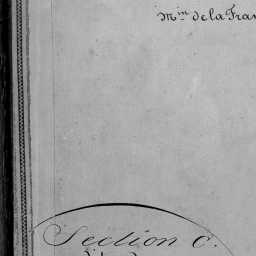 Min de la Fran
Section C.